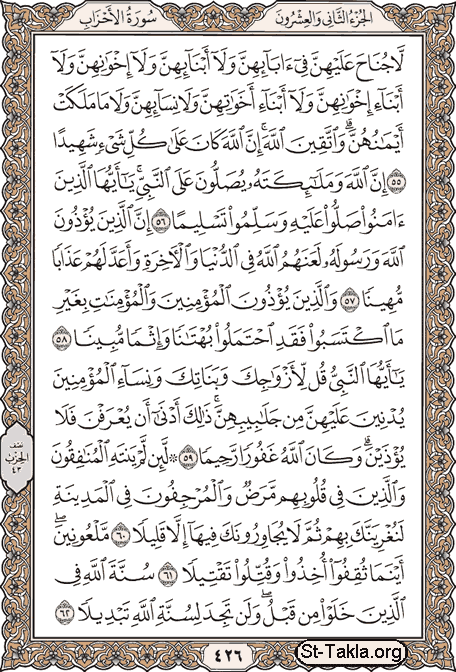 الجزء الثاني والعشرون
سورة الأحزاب
لَّا جُنَاحَ عَلَيْهِنَّ فِىٓ ءَابَآئِهِنَّ وَلَآ أَبْنَآئِهِنَّ وَلَآ إِخْوَٰنِهِنَّ وَلَآ
أَبْنَآءِ إِخْوَٰنِهِنَّ وَلَآ أَبْنَآءِ أَخَوَٰتِهِنَّ وَلَا نِسَآئِهِنَّ وَلَا مَا مَلَكَتْ
أَيْمَٰنُهُنَّ ۗ وَٱتَّقِينَ ٱللَّهَ ۚ إِنَّ ٱللَّهَ كَانَ عَلَىٰ كُلِّ شَىْءٍ شَهِيدًا
٥٥ إِنَّ ٱللَّهَ وَمَلَٰٓئِكَتَهُۥ يُصَلُّونَ عَلَى ٱلنَّبِىِّ ۚ يَٰٓأَيُّهَا ٱلَّذِينَ
ءَامَنُوا۟ صَلُّوا۟ عَلَيْهِ وَسَلِّمُوا۟ تَسْلِيمًا ٥٦ إِنَّ ٱلَّذِينَ يُؤْذُونَ
ٱللَّهَ وَرَسُولَهُۥ لَعَنَهُمُ ٱللَّهُ فِى ٱلدُّنْيَا وَٱلْءَاخِرَةِ وَأَعَدَّ لَهُمْ عَذَابًا
مُّهِينًا ٥٧ وَٱلَّذِينَ يُؤْذُونَ ٱلْمُؤْمِنِينَ وَٱلْمُؤْمِنَٰتِ بِغَيْرِ
مَا ٱكْتَسَبُوا۟ فَقَدِ ٱحْتَمَلُوا۟ بُهْتَٰنًا وَإِثْمًا مُّبِينًا ٥٨
يَٰٓأَيُّهَا ٱلنَّبِىُّ قُل لِّأَزْوَٰجِكَ وَبَنَاتِكَ وَنِسَآءِ ٱلْمُؤْمِنِينَ
يُدْنِينَ عَلَيْهِنَّ مِن جَلَٰبِيبِهِنَّ ۚ ذَٰلِكَ أَدْنَىٰٓ أَن يُعْرَفْنَ فَلَا
يُؤْذَيْنَ ۗ وَكَانَ ٱللَّهُ غَفُورًا رَّحِيمًا ٥٩ ۞ لَّئِن لَّمْ يَنتَهِ ٱلْمُنَٰفِقُونَ
وَٱلَّذِينَ فِى قُلُوبِهِم مَّرَضٌ وَٱلْمُرْجِفُونَ فِى ٱلْمَدِينَةِ
لَنُغْرِيَنَّكَ بِهِمْ ثُمَّ لَا يُجَاوِرُونَكَ فِيهَآ إِلَّا قَلِيلًا ٦٠ مَّلْعُونِينَ ۖ
أَيْنَمَا ثُقِفُوٓا۟ أُخِذُوا۟ وَقُتِّلُوا۟ تَقْتِيلًا ٦١ سُنَّةَ ٱللَّهِ فِى
ٱلَّذِينَ خَلَوْا۟ مِن قَبْلُ ۖ وَلَن تَجِدَ لِسُنَّةِ ٱللَّهِ تَبْدِيلًا ٦٢
نصف
الحزب
٤٣
٤٢٦
St-Takla.org